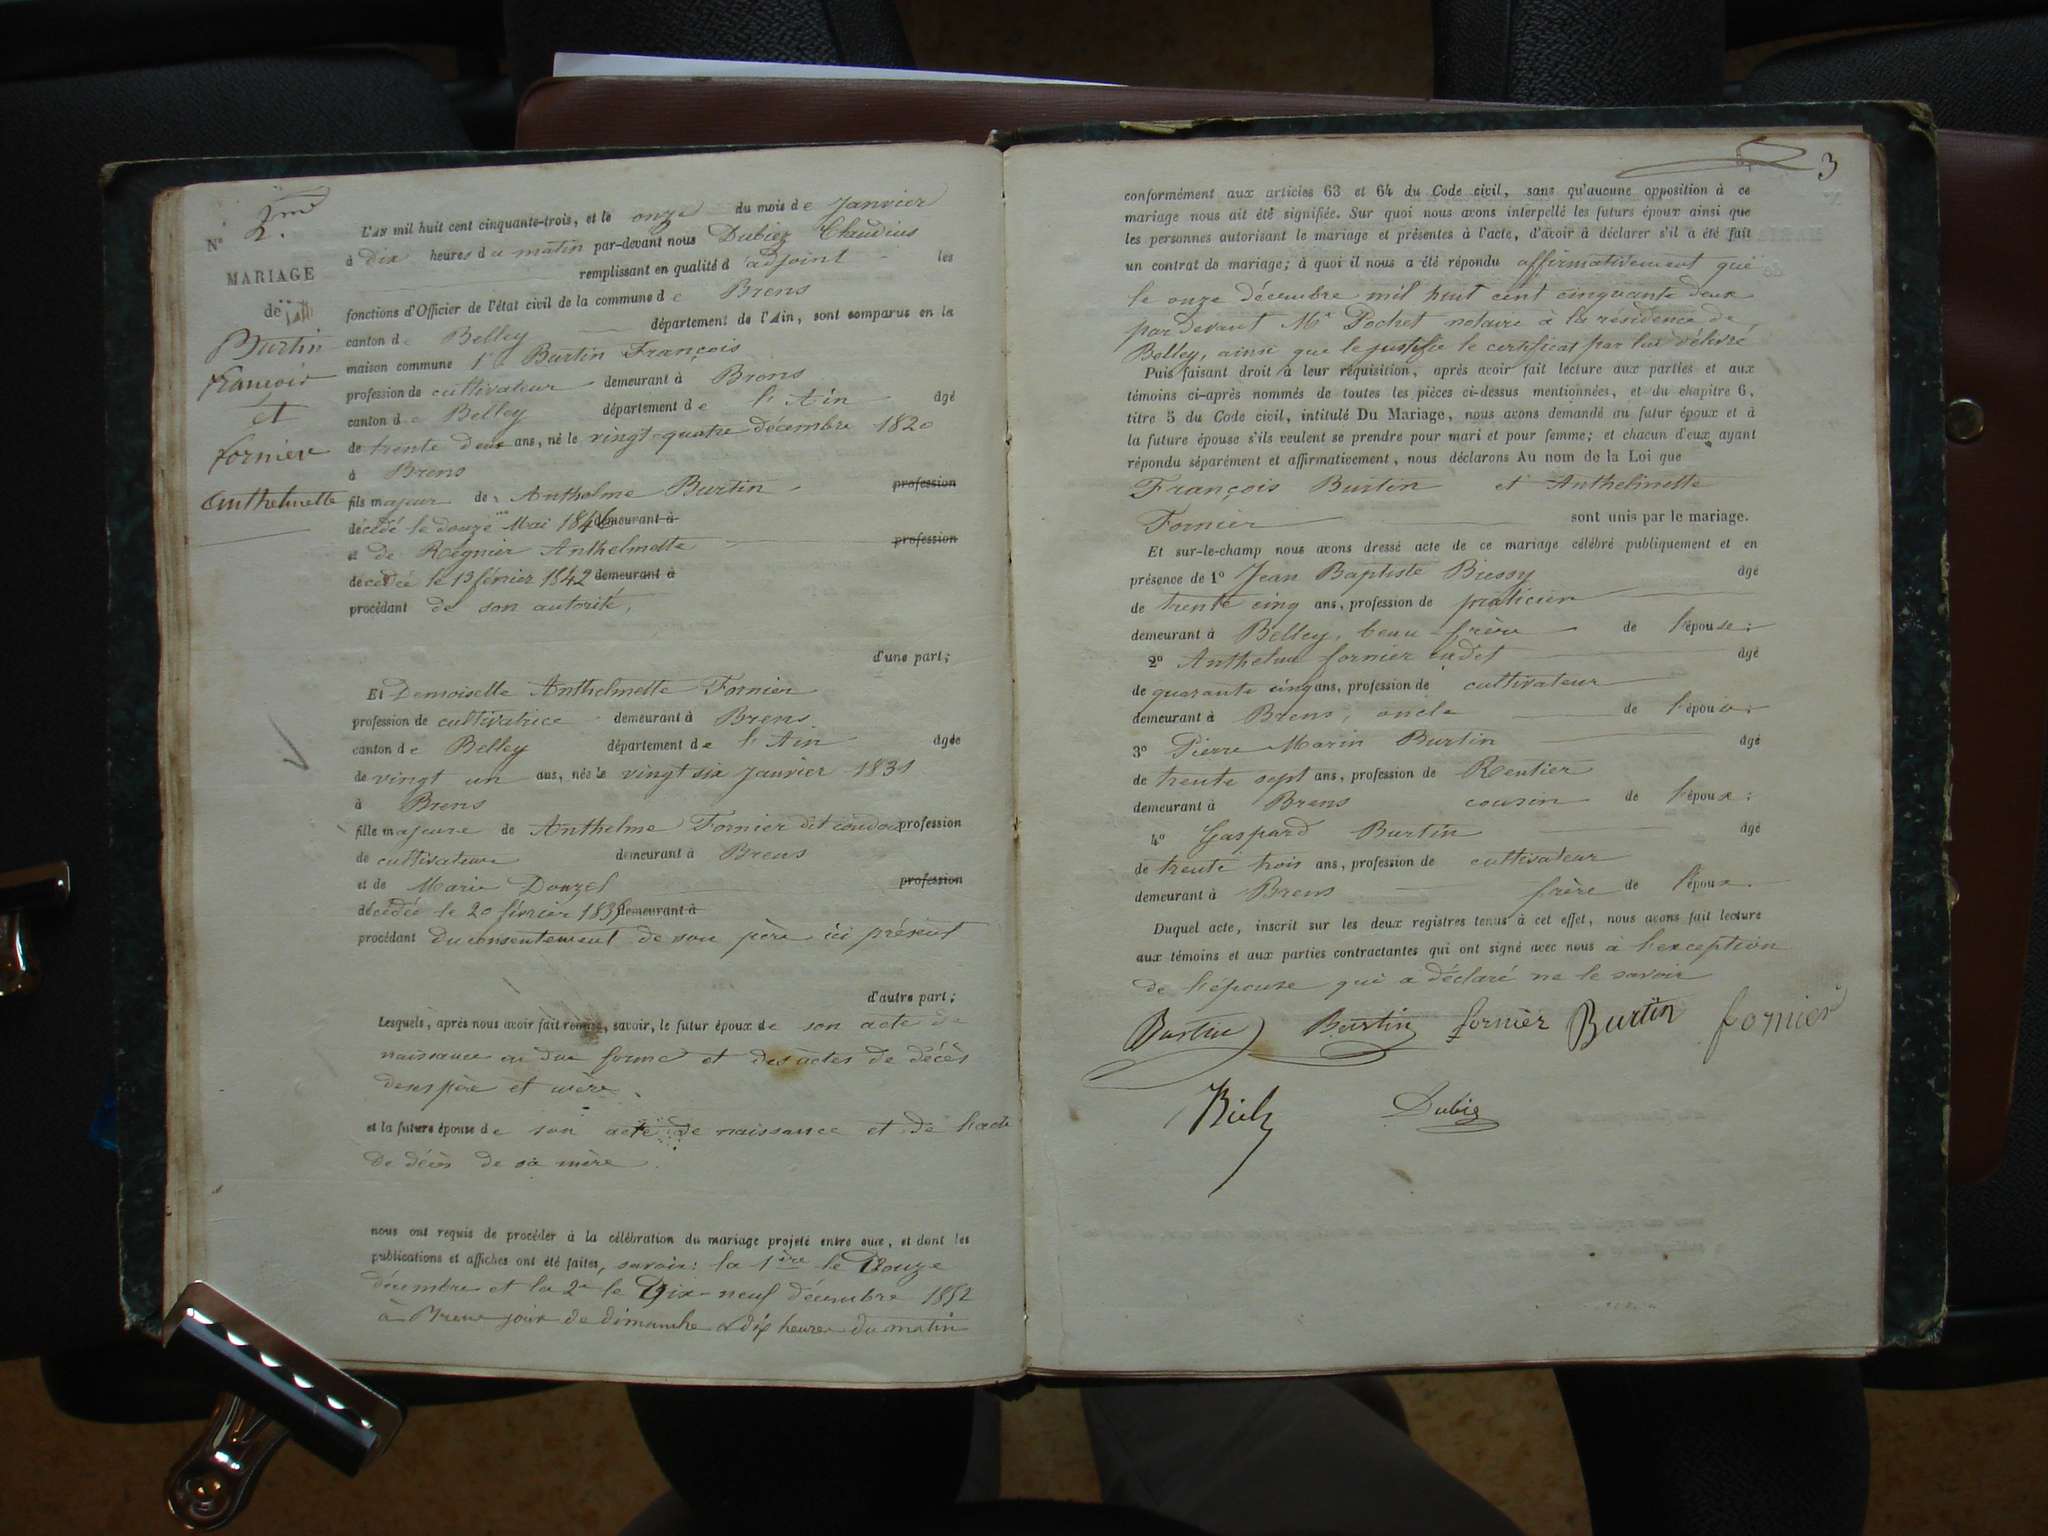 2me
N° 2.
MARIAGE
de
Burtin
françois
et
fornier
Anthelmette
L'AN mil huit cent cinquante-trois, et le onze du mois de Janvier
à dix heures du matin par-devant nous Dubiez Claudius
remplissant en qualité d'adjoint les
fonctions d'Officier de l'état civil de la commune de Brens
canton de Belley département de l'Ain, sont comparus en la
maison commune 1° Burtin François
profession de cultivateur demeurant à Brens
canton de Belley département de l'Ain âgé
de trente deux ans, né le vingt quatre décembre 1820
à Brens
fils majeur de Anthelme Burtin profession
décédé le douze Mai 1846 demeurant à
et de Regnier Anthelmette profession
décédée le 13 février 1842 demeurant à
procédant de son autorité,
d'une part;
Et Demoiselle Anthelmette Fornier
profession de cultivatrice demeurant à Brens
canton de Belley département de l'Ain âgée
de vingt un ans, née le vingt six Janvier 1831
à Brens
fille majeure de Anthelme Fornier dit profession
de cultivateur demeurant à Brens
et de Marie Douzel profession
décédée le 20 février demeurant à
procédant du consentement de son père ici présent
d'autre part;
Lesquels, après nous avoir fait remise, savoir, le futur époux de son acte de
naissance en due forme et des actes de décès
de ses père et mère
et la future épouse de son acte de naissance et de l'acte
de décès de sa mère
nous ont requis de procéder à la célébration du mariage projeté entre eux, et dont les
publications et affiches ont été faites, savoir: la 1ère le Douze
décembre et la 2e le Dix-neuf décembre 1852
à Brens jour de dimanche à dix heures du matin
3
conformément aux articles 63 et 64 du Code civil, sans qu'aucune opposition à ce
mariage nous ait été signifiée. Sur quoi nous avons interpellé les futurs époux ainsi que
les personnes autorisant le mariage et présentes à l'acte, d'avoir à déclarer s'il a été fait
un contrat de mariage; à quoi il nous a été répondu affirmativement que
le onze décembre mil huit cent cinquante deux
par devant Me Pochet notaire à la résidence de
Belley, ainsi que le justifie le certificat par lui délivré
Puis faisant droit à leur réquisition, après avoir fait lecture aux parties et aux
témoins ci-après nommés de toutes les pièces ci-dessus mentionnées, et du chapitre 6,
titre 5 du Code civil, intitulé Du Mariage, nous avons demandé au futur époux et à
la future épouse s'ils veulent se prendre pour mari et pour femme; et chacun d'eux ayant
répondu séparément et affirmativement, nous déclarons Au nom de la Loi que
François Burtin et Anthelmette
Fornier sont unis par le mariage.
Et sur-le-champ nous avons dressé acte de ce mariage célébré publiquement et en
présence de 1° Jean Baptiste Biessy âgé
de trente cinq ans, profession de praticien
demeurant à Belley, beau frère de l'épouse;
2° Anthelme fornier cadet âgé
de quarante cinq ans, profession de cultivateur
demeurant à Brens, oncle de l'épouse;
3° Pierre Marin Burtin âgé
de trente sept ans, profession de Rentier
demeurant à Brens cousin de l'époux;
4° Gaspard Burtin âgé
de trente trois ans, profession de cultivateur
demeurant à Brens frère de l'époux.
Duquel acte, inscrit sur les deux registres tenus à cet effet, nous avons fait lecture
aux témoins et aux parties contractantes qui ont signé avec nous à l'exception
de l'épouse qui a déclaré ne le savoir
Burtin Burtin fornier Burtin fornier
Dubiez